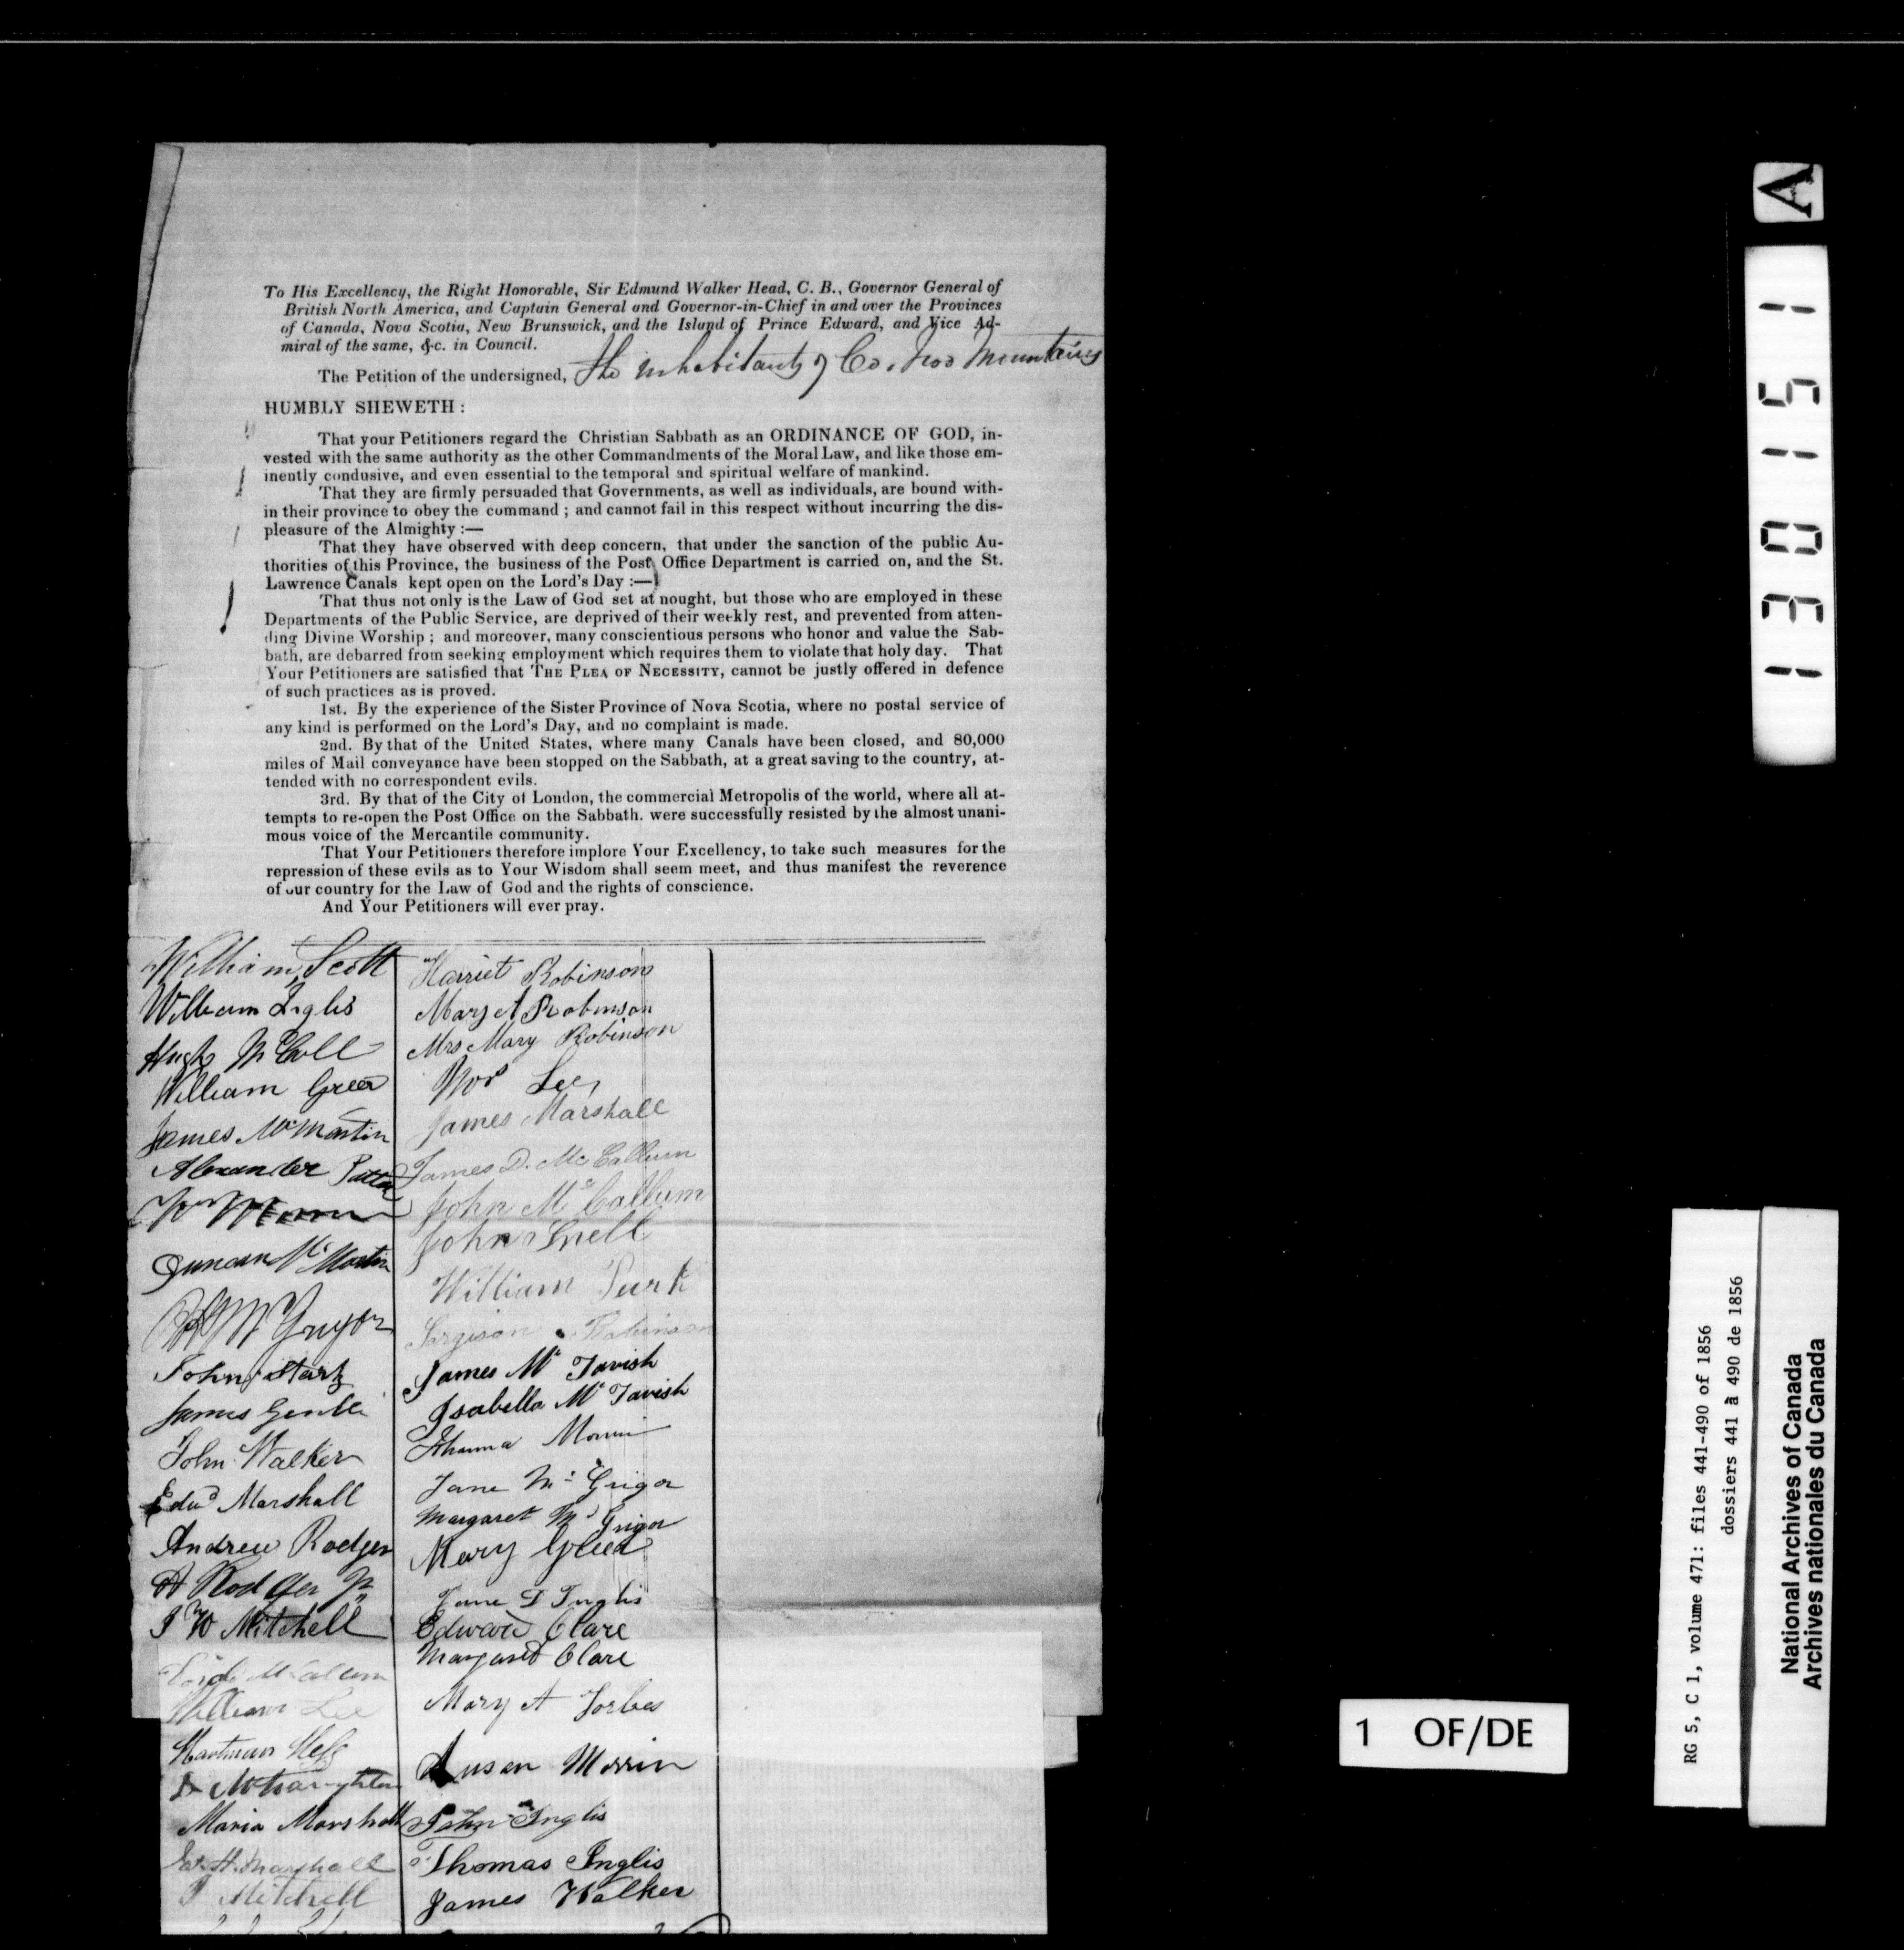 To His Excellency, the Right Honorable, Sir Edmund Walker Head, C. B., Governor General of
British North America, and Captain General and Governor-in-Chief in and over the Provinces
of Canada, Nova Scotia, New Brunswick, and the Island of Prince Edward, and Vice Ad-
miral of the same, &c. in Council.
The Petition of the undersigned, the inhabitants of Co. Two Mountains
HUMBLY SHEWETH :
That your Petitioners regard the Christian Sabbath as an ORDINANCE OF GOD, in-
vested with the same authority as the other Commandments of the Moral Law, and like those em-
inently condusive, and even essential to the temporal and spiritual welfare of mankind.
That they are firmly persuaded that Governments, as well as individuals, are bound with-
in their province to obey the command ; and cannot fail in this respect without incurring the dis-
pleasure of the Almighty :—
That they have observed with deep concern, that under the sanction of the public Au-
thorities of this Province, the business of the Post Office Department is carried on, and the St.
Lawrence Canals kept open on the Lord's Day :—
That thus not only is the Law of God set at nought, but those who are employed in these
Departments of the Public Service, are deprived of their weekly rest, and prevented from atten-
ding Divine Worship ; and moreover, many conscientious persons who honor and value the Sab-
bath, are debarred from seeking employment which requires them to violate that holy day. That
Your Petitioners are satisfied that THE PLEA OF NECESSITY, cannot be justly offered in defence
of such practices as is proved.
1st. By the experience of the Sister Province of Nova Scotia, where no postal service of
any kind is performed on the Lord's Day, and no complaint is made.
2nd. By that of the United States, where many Canals have been closed, and 80,000
miles of Mail conveyance have been stopped on the Sabbath, at a great saving to the country, at-
tended with no correspondent evils.
3rd. By that of the City of London, the commercial Metropolis of the world, where all at-
tempts to re-open the Post Office on the Sabbath. were successfully resisted by the almost unani-
mous voice of the Mercantile community.
That Your Petitioners therefore implore Your Excellency, to take such measures for the
repression of these evils as to Your Wisdom shall seem meet, and thus manifest the reverence
of our country for the Law of God and the rights of conscience.
And Your Petitioners will ever pray.
William Scott
William Inglis
Hugh McColl
William Greer
James McMartin
Alexander
Duncan McMartin
McGregor
John Stark
James
John Walker
Edwd Marshall
Andrew Rodger
A Rodger Jr
J W Mitchell
McCalum
William Lee
Hartman
D McNaughton
Maria Marshall
H. Marshall
Mitchell
Harriet Robinson
Mary A Robinson
Mrs Mary Robinson
Mrs Lee
James Marshall
James D. McCallum
John McCallum
John Snell
William Park
Robinson
James McTavish
Isabella McTavish
Johanna Morrin
Jane McGrigor
Margaret McGrigor
Mary Greer
Jane D Inglis
Edward Clare
Margaret Clare
Mary A Forbes
Susan Morrin
John Inglis
Thomas Inglis
James Walker
A
130151
1 OF/DE
RG 5, C 1, volume 471: files 441-490 of 1856
dossiers 441 à 490 de 1856
National Archives of Canada
Archives nationales du Canada